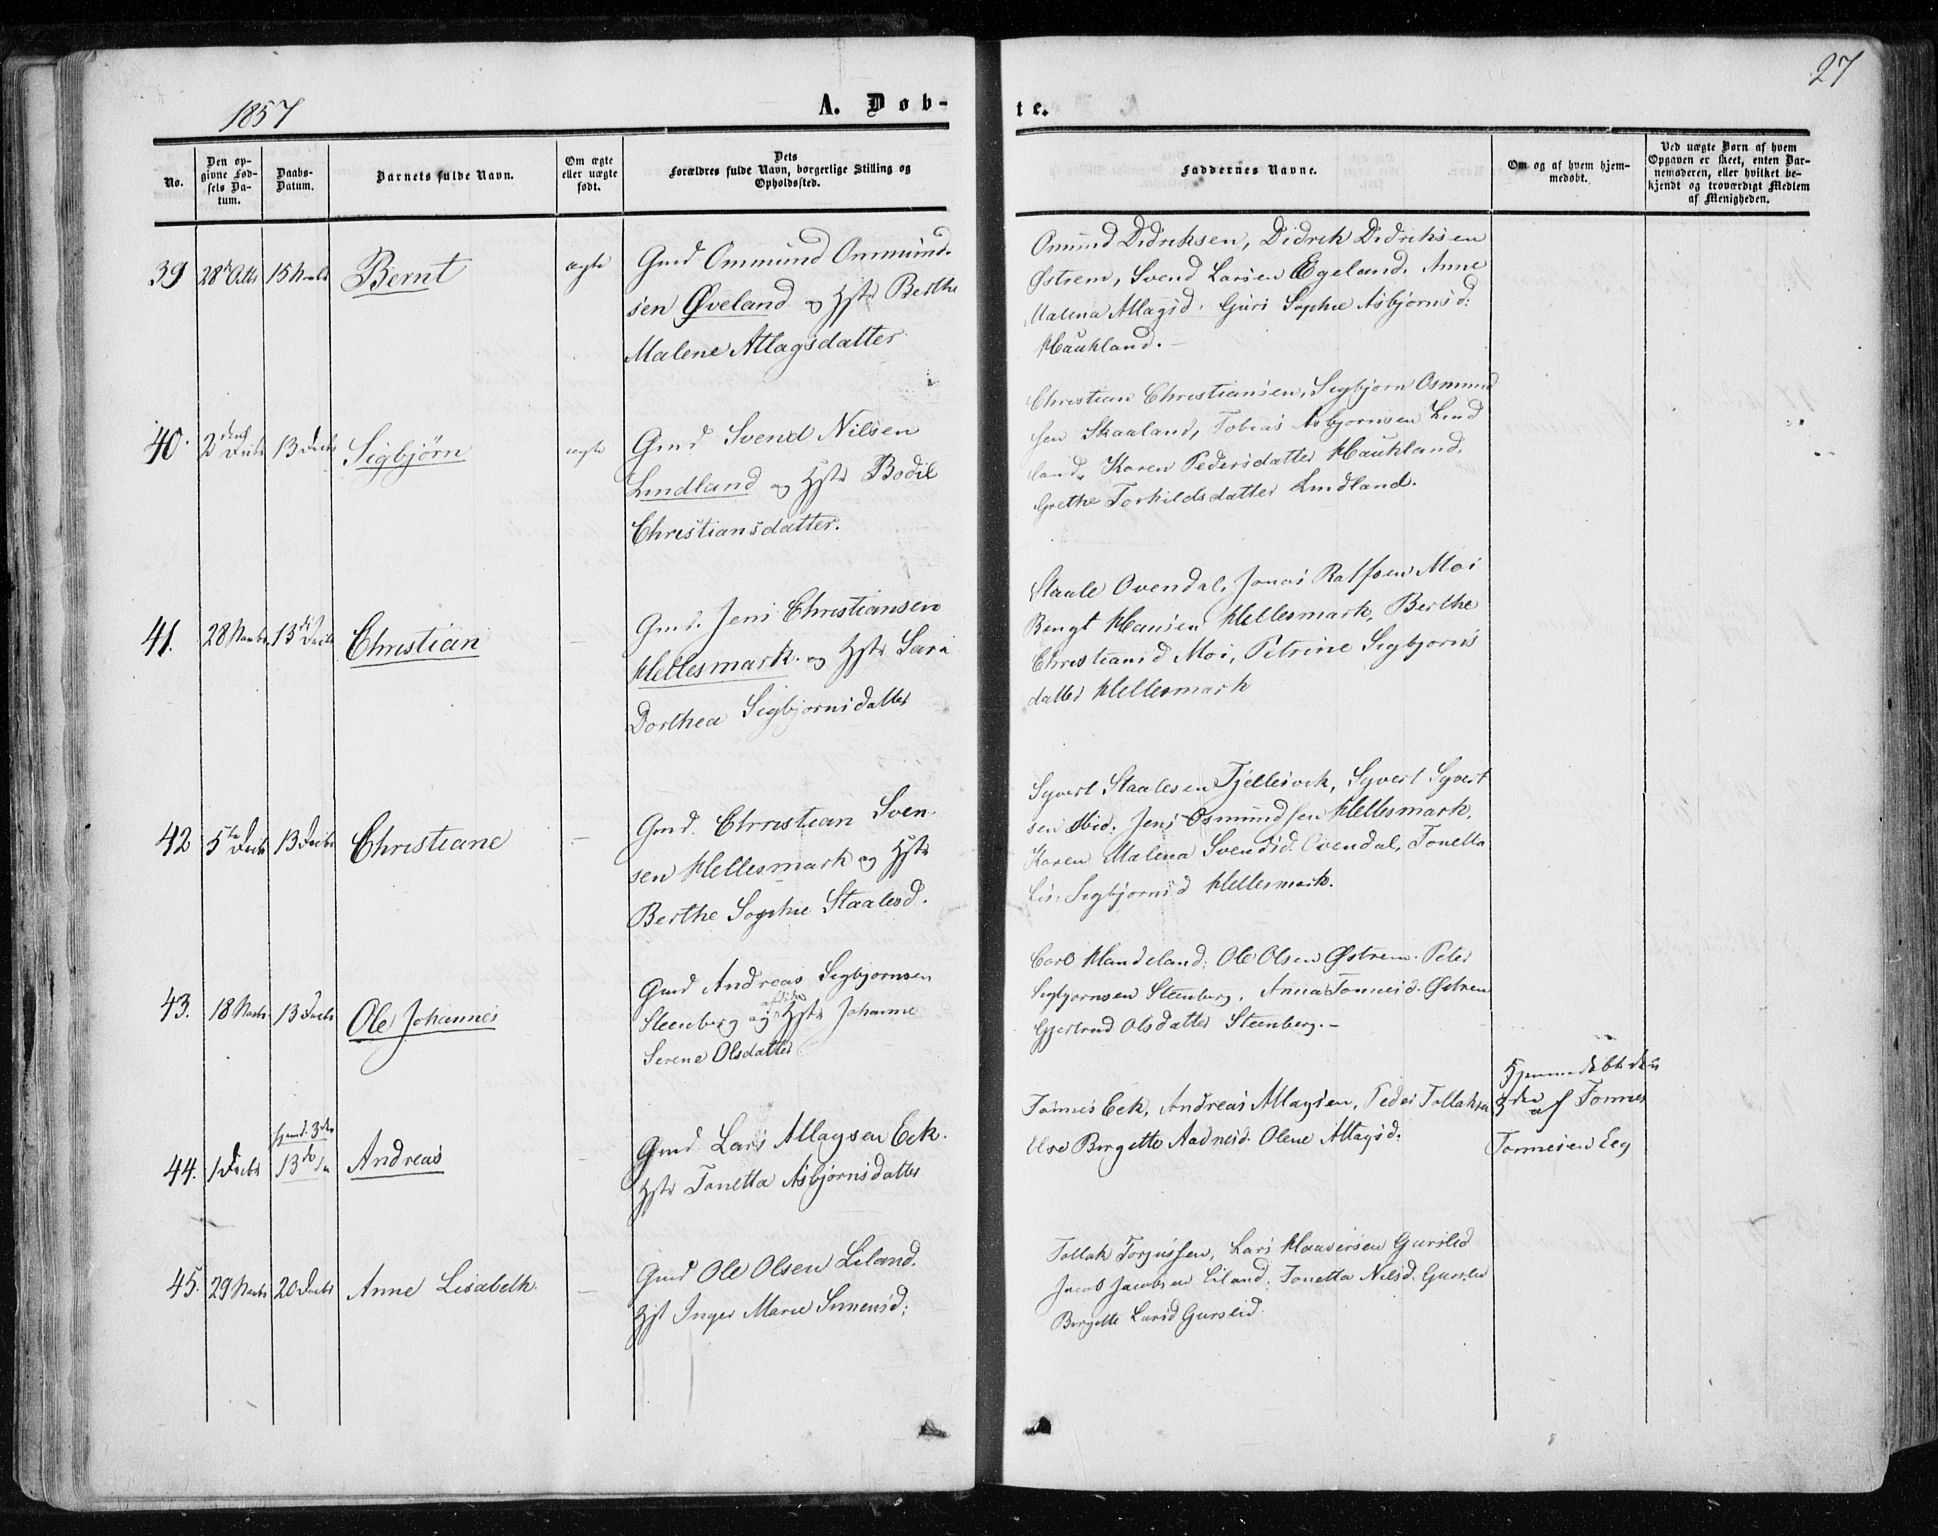 1857
A. Døb-
te.
27
No.
Den op-
givne Fød-
sels Da-
tum.
Daabs-
Datum.
Barnets fulde Navn.
Om ægte
eller uægte
født.
Dets
Forældres fulde Navn, borgerlige Stilling og
Opholdssted.
Faddernes Navne.
Om og af hvem hjem-
medøbt.
Ved uægte Børn af hvem
Opgaven er skeet, enten Bar-
nemoderen, eller hvilket be-
kjendt og troværdigt Medlem
af Menigheden.
39 28de Octbr 15 Novbr Bernt ægte
Gmd Ommund Ommund-
sen Øveland og Hstr Berthe
Malene Atlagsdatter
Omund Didriksen, Didrik Didriksen
Østrem, Svend Larsen Egeland. Anne
Malena Atlagsd. Guri Sophie Asbjørnsd:
Haukland.-
40. 2den Decbr 13 Decbr Sigbjørn ægte
Gmd Svend Nilsen
Lindland og Hstr Bodil
Christiansdatter.
Christian Christiansen, Sigbjørn Osmund
sen Skaaland, Tobias Asbjørnsen Lind
land, Karen Pedersdatter Haukland,
Grethe Torkildsdatter Lindland.
41. 28 Novbr 13de Decbr Christian
Gmd. Jens Christiansen
Hellesmark. og Hstr Sara
Dorthea Sigbjørnsdatter
Staale Ovendal, Jonas Ralfsen Moi
Bengt Hansen Hellesmark, Berthe
Christiansd Moi, Petrine Sigbjørns
datter Hellesmark
42 5te Decbr 13 Decbr Christiane -
Gmd. Christian Sven-
sen Hellesmark og Hstr
Berthe Sophie Staalesd.
Syvert Staalesen Fjellesvek, Syvert Syvert
sen ibid: Jens Osmundsen Hellesmark,
Karen Malena Svendsd. Ovendal, Tonetta
Lis: Sigbjørnsd Hellesmark.
43. 18 Novbr 13 Decbr Ole Johannes
Gmd Andreas Sigbjørnsen
Steenberg og afdøde Hstr Johanne
Serene Olsdatter
Carl Handeland: Ole Olsen Østrem. Peter
Sigbjørnsen Steenberg, Anna Tønnesd. Østrem
Gjertrud Olsdatter Steenberg.-
44. 1 Decbr hjemd. 3die
13de Andreas
Gmd Lars Atlagsen Eek.
Hstr Tonetta Asbjørnsdatter
Tønnes Eek, Andreas Atlagsen, Peder Tollaksen
Else Birgitte Aadnesd. Olene Atlagsd.
Hjemmedøbt den
3die af Tønnes
Tønnesen Eeg
45. 29 Novbr 20 Decbr Anne Lisabeth. -
Gmd Ole Olsen Liland.
Hst Inger Marie Simensd;
Tollak Torjussen, Lars Haaversen Gursled
Jacob Jacobsen Liland: Tonetta Nilsd. Gursled
Birgitte Larsd Gursled.